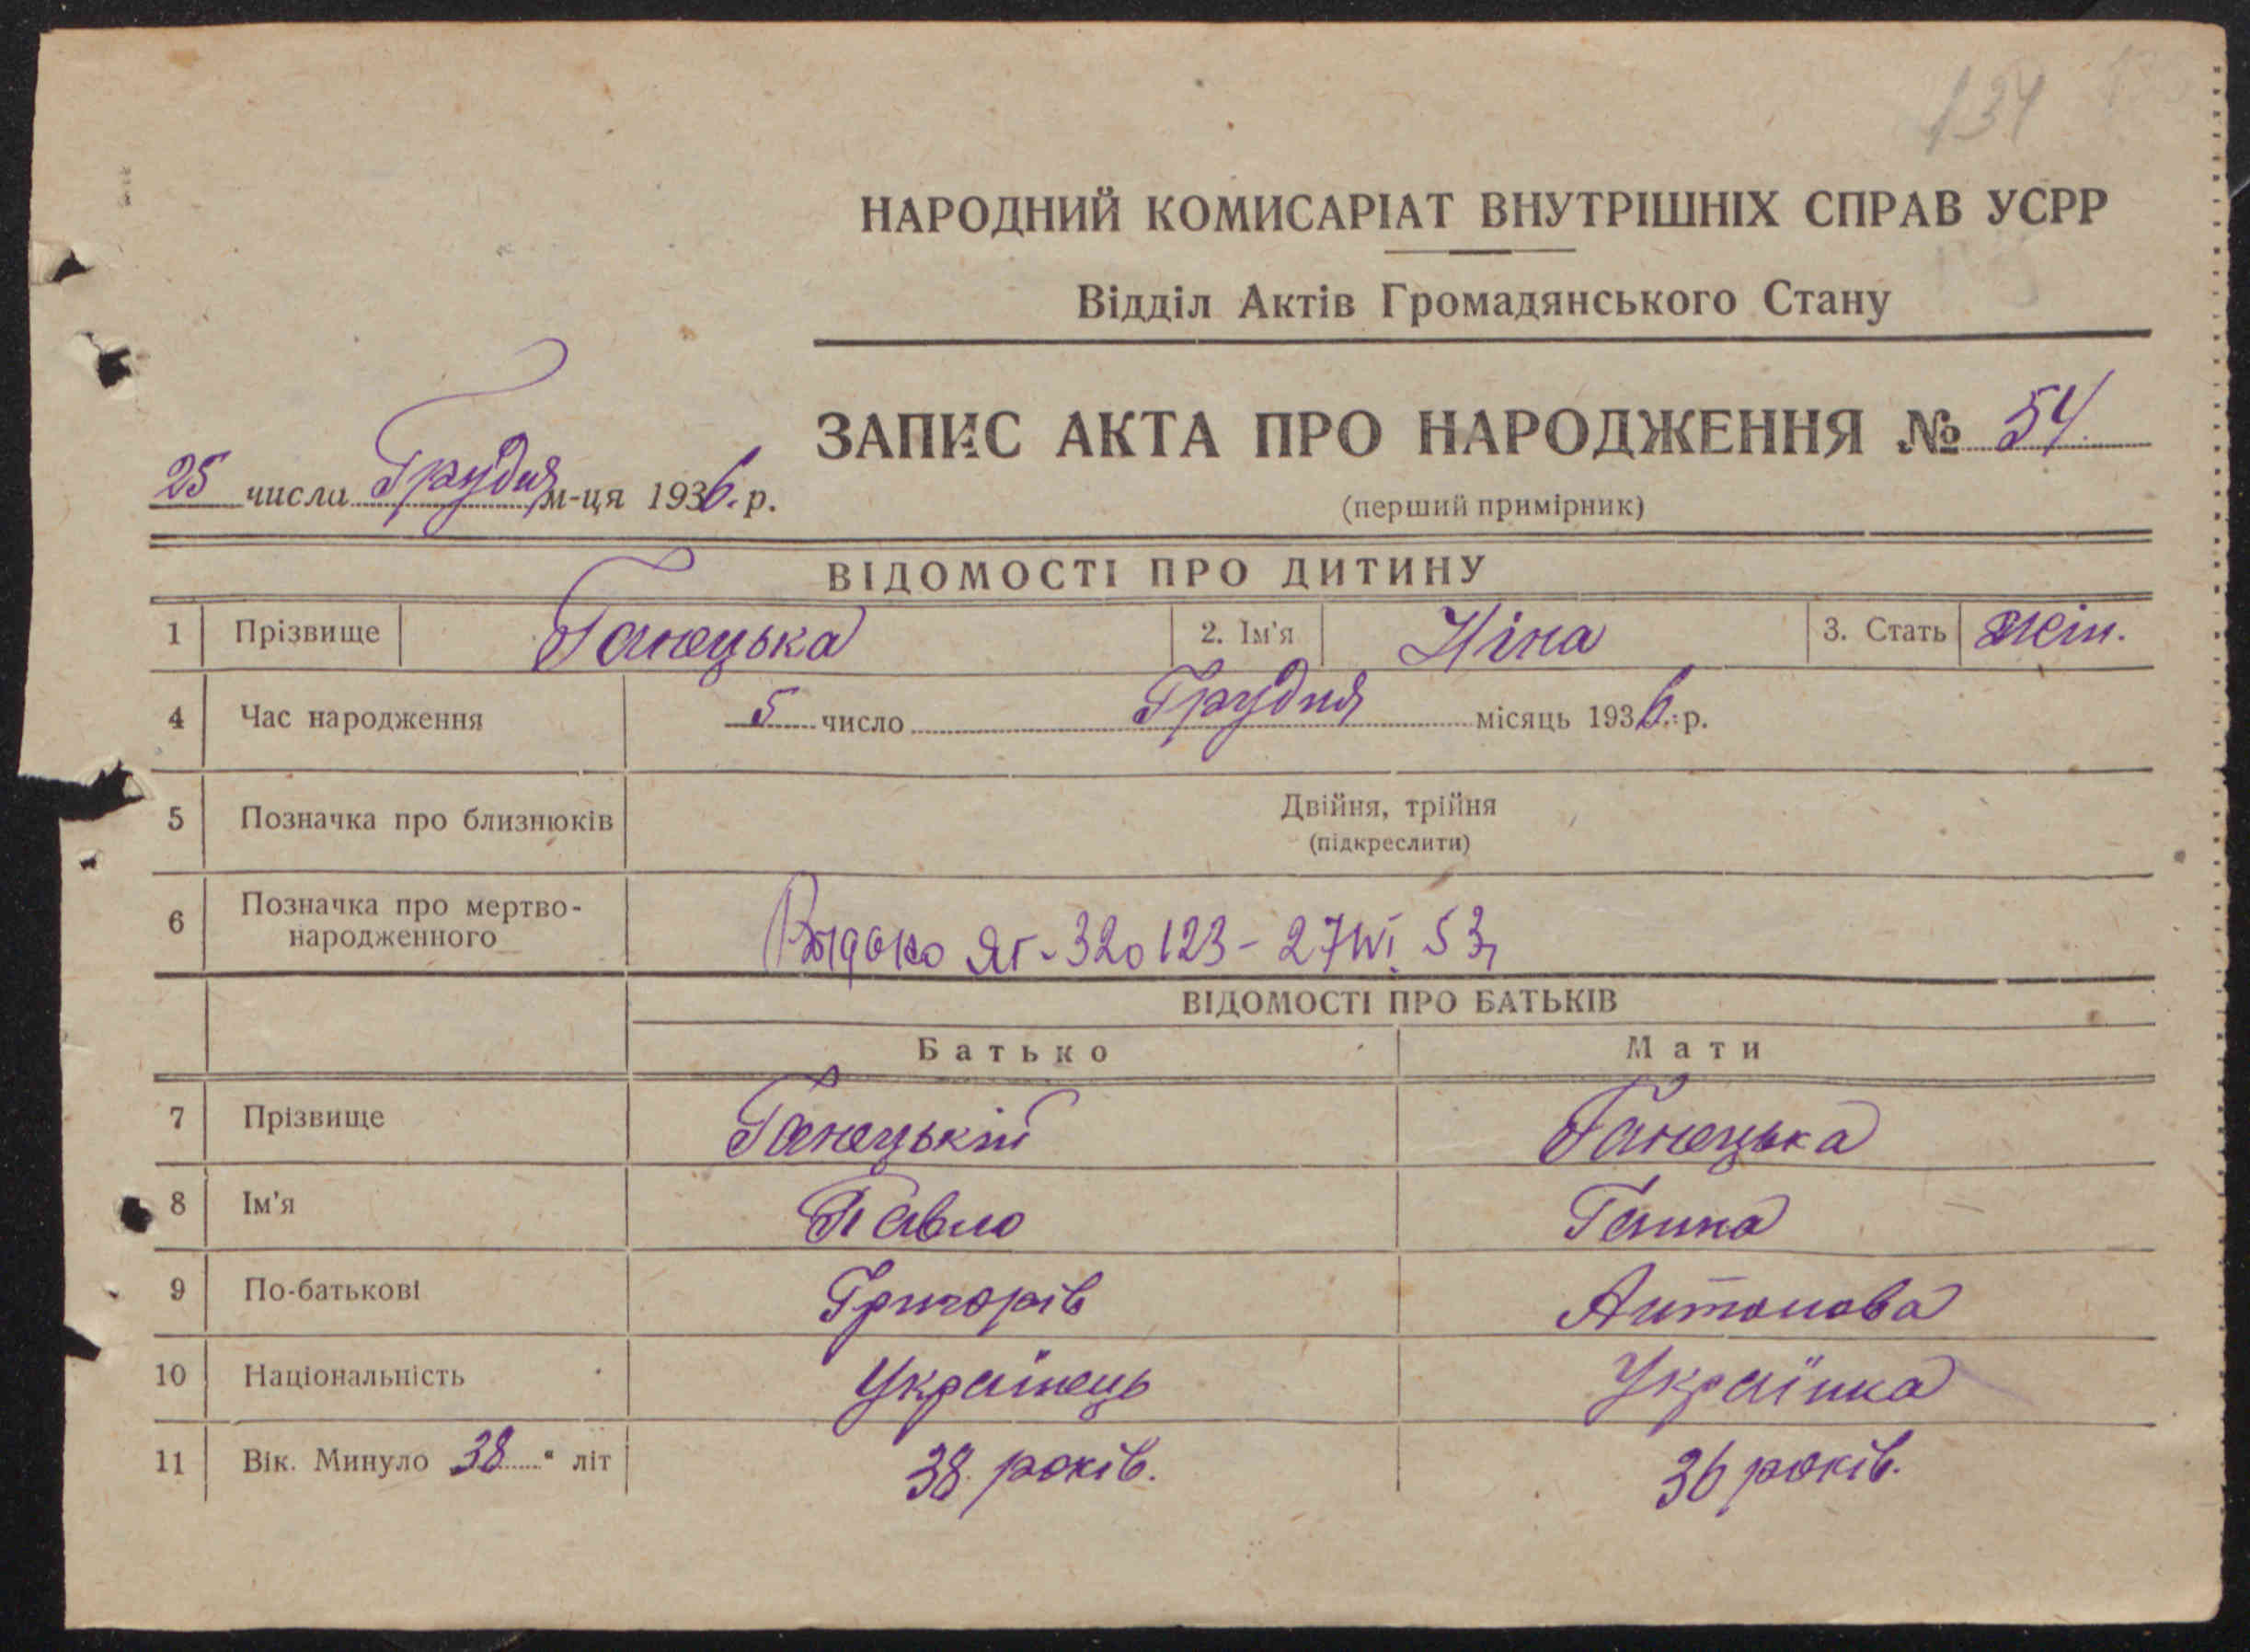 134
НАРОДНИЙ КОМИСАРІАТ ВНУТРІШНІХ СПРАВ УСРР
Відділ Актів Громадянського Стану
ЗАПИС АКТА ПРО НАРОДЖЕННЯ № 54
25 числа Грудня м-ця 1936 р.
(перший примірник)
ВІДОМОСТІ ПРО ДИТИНУ
1 Прізвище Ганецька 2. Ім'я Ніна 3. Стать жін.
4 Час народження 5 число Грудня місяць 1936 р.
5 Позначка про близнюків Двійня, трійня
(підкреслити)
6 Позначка про мертво-
народженного
ЯГ-320123-27 VI 53
ВІДОМОСТІ ПРО БАТЬКІВ
Батько Мати
7 Прізвище Ганецький Ганецька
8 Ім'я Павло Ганна
9 По-батькові Григорів Антонова
10 Національність Українець Українка
11 Вік. Минуло 38 " літ 38 років. 36 років.